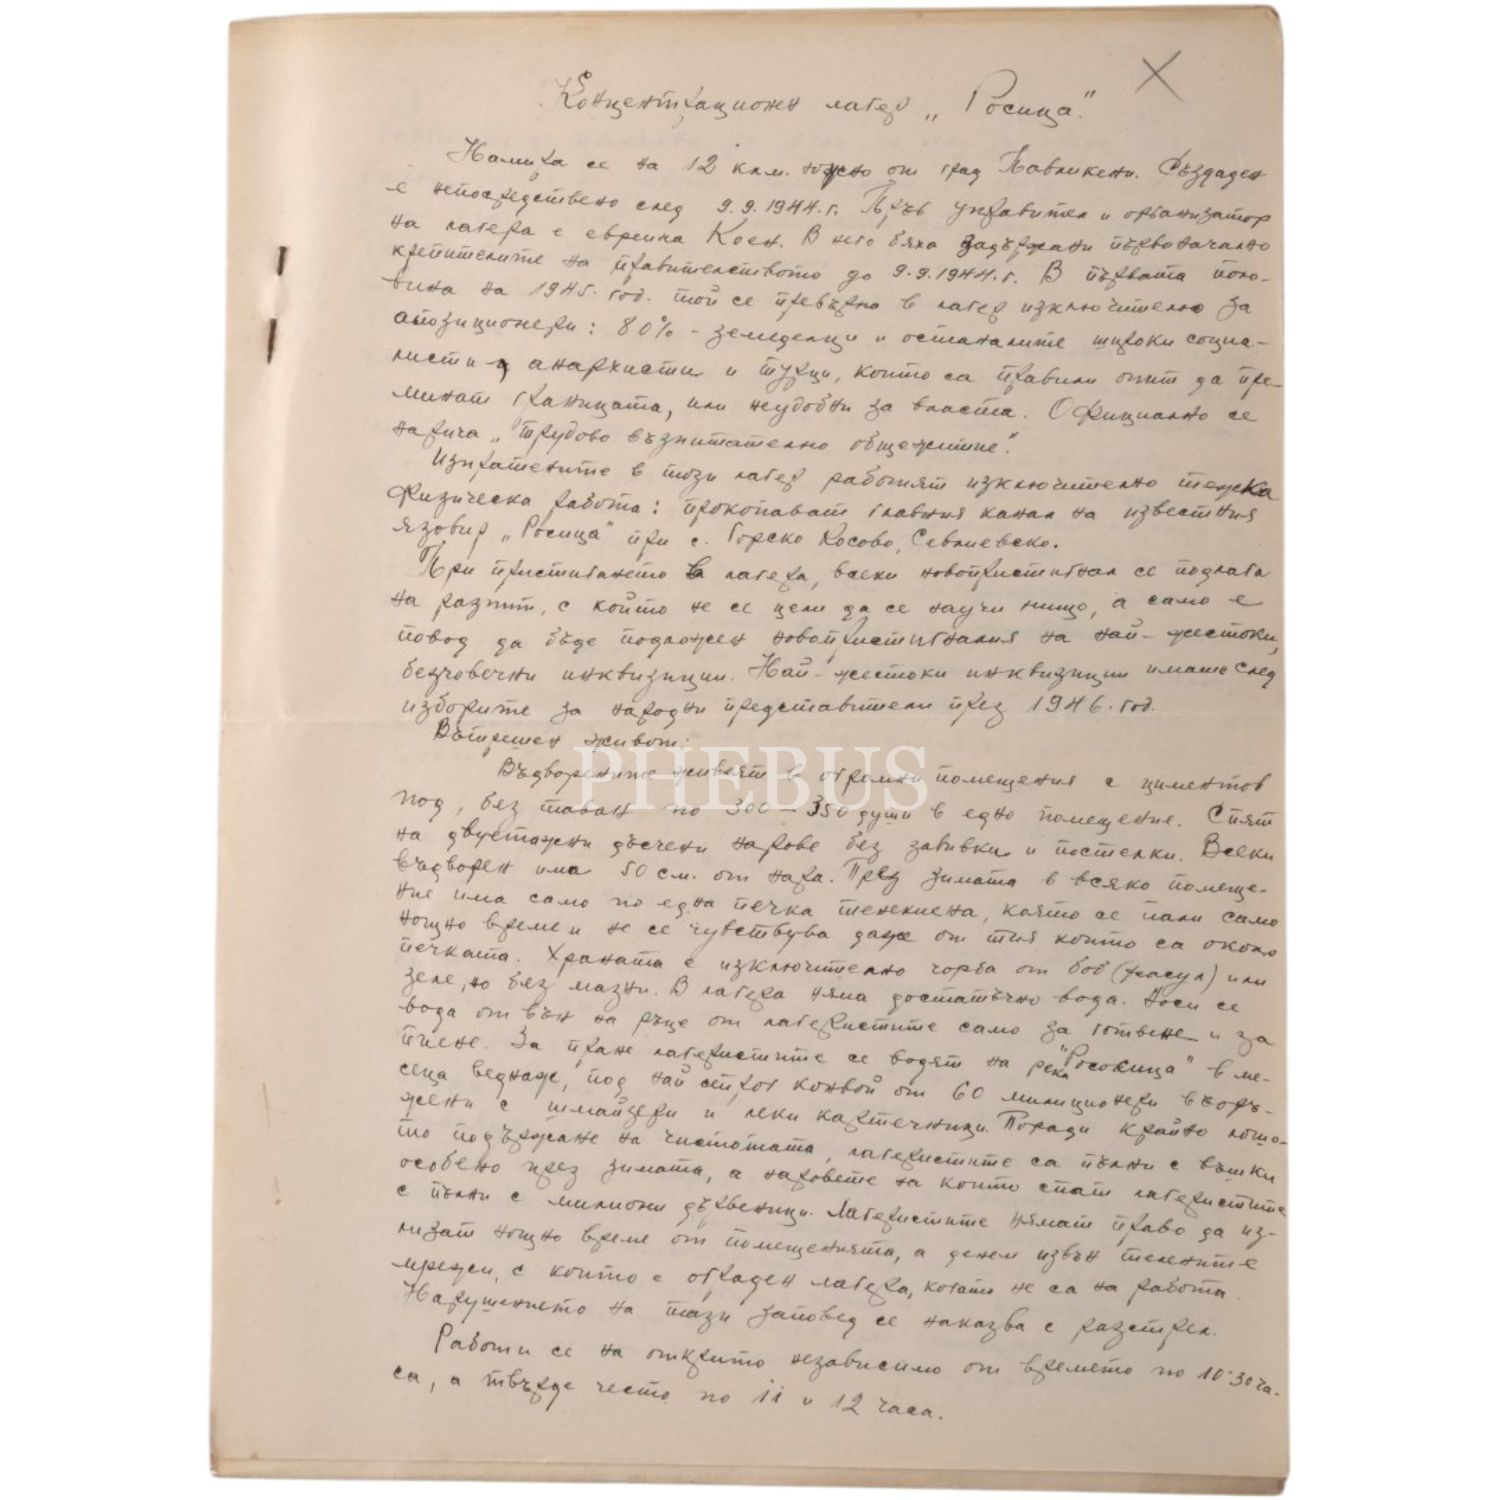 Концентрационен лагер „Росица“.
Намира се на 12 клм. южно от град Павликени. Създаден
е непосредствено след 9.9.1944.г. Пръв управител и организатор
на лагера е евреина Коен. В него бяха задържани първоначално
крепителите на правителството до 9.9.1944.г. В първата поло-
вина на 1945. год. той се превърна в лагер изключително за
опозиционери: 80% - земеделци и останалите широки социа-
листи, анархисти и турци, които са правили опит да пре-
минат границата, или неудобни за властта. Официално се
нарича „Трудово възпитателно общежитие“.
Изпратените в този лагер работят изключително тежка
физическа работа: прокопават главния канал на известния
язовир „Росица“ при с. Горско Косово, Севлиевско.
При пристигането в лагера, всеки новопристигнал се подлага
на разпит, с който не се цели да се научи нищо, а само е
повод да бъде подложен новопристигналия на най-жестоки,
безчовечни инквизиции. Най-жестоки инквизиции имаше след
изборите за народни представители през 1946. год.
Вътрешен живот:
PHEBUS
Въдворените живеят в огромни помещения с циментов
под, без таван по 300 – 350 души в едно помещение. Спят
на двуетажни дъсчени нарове без завивки и постелки. Всеки
въдворен има 50 см. от нара. През зимата в всяко помеще-
ние има само по една печка тенекиена, която се пали само
нощно време и не се чувствува даже от тия които са около
печката. Храната е изключително чорба от боб (фасул) или
зеле, но без мазни. В лагера няма достатъчно вода. Носи се
вода от вън на ръце от лагеристите само за готвене и за
пиене. За пране лагеристите се водят на река „Росовица“ в ме-
сеца веднаж, под най строг конвой от 60 милиционери въоръ-
жени с шмайзери и леки картечници. Поради крайно лошо-
то подържане на чистотата, лагеристите са пълни с въшки
особено през зимата, а наровете на които спят лагеристите
с пълни с милиони дървеници. Лагеристите нямат право да из-
лизат нощно време от помещенията, а денем извън телените
мрежи, с които е ограден лагера, когато не са на работа.
Нарушението на тази заповед се наказва с разстрел.
Работи се на открито независимо от времето по 10·30 ча-
са, а твърде често по 11 и 12 часа.